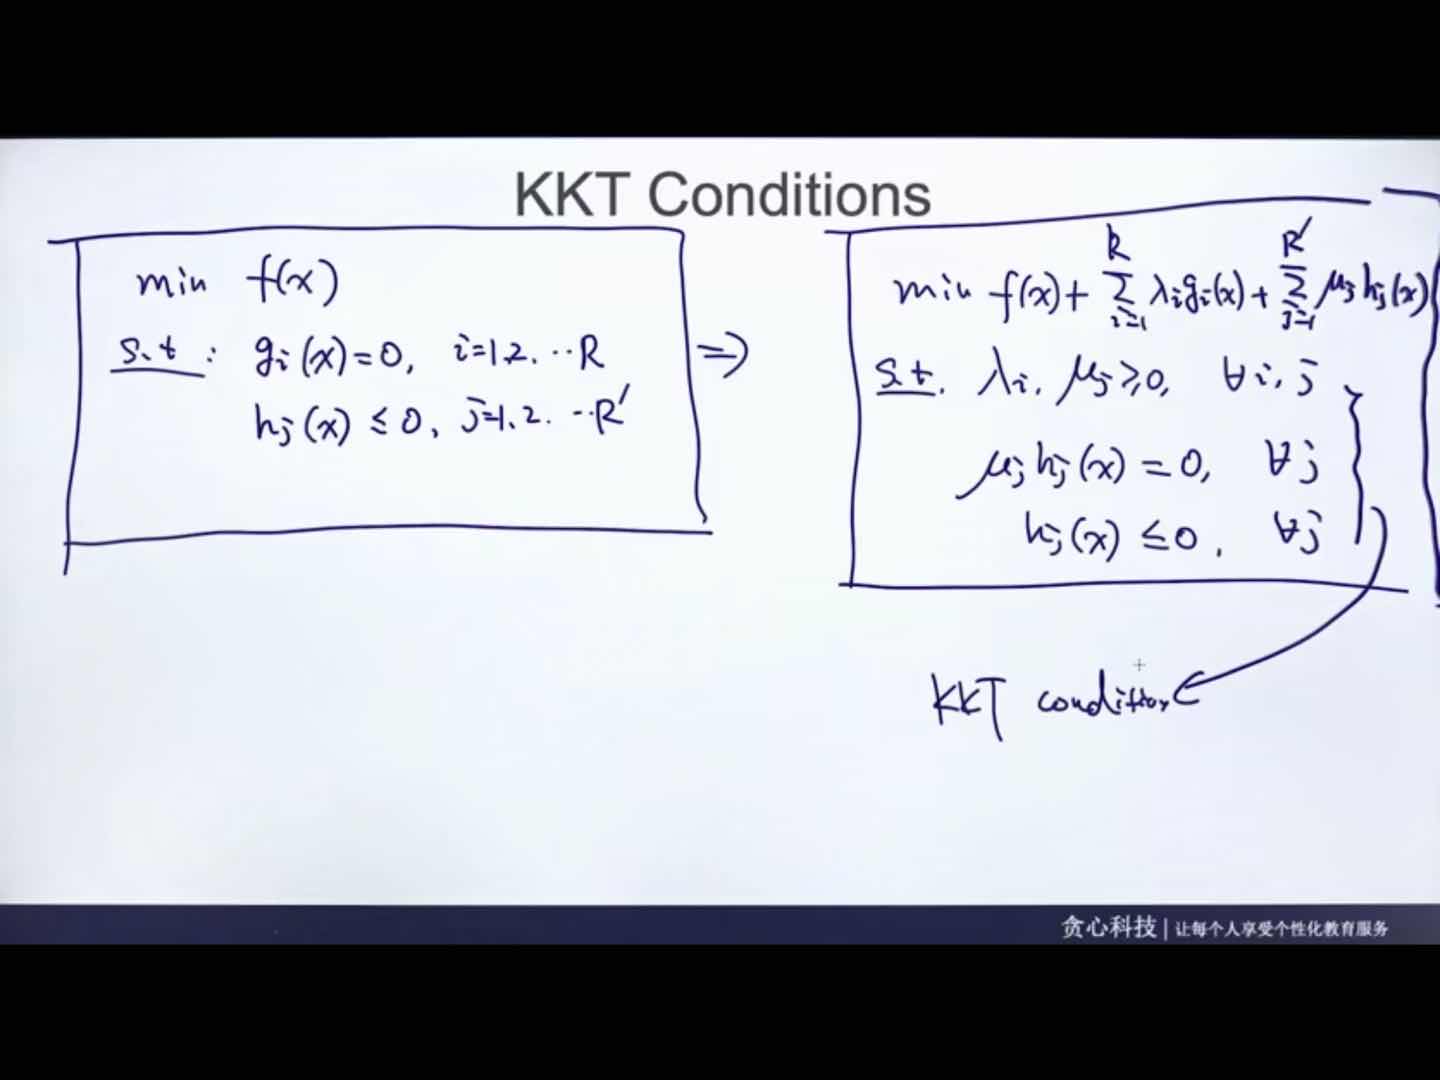 KKT Conditions
min f(x)
s.t : gi(x)=0, i=1,2. ··R
hj(x) ≤ 0, j=1,2. ··R'
⇒
min f(x)+ Σ_{i=1}^{R} λigi(x)+ Σ_{j=1}^{R'} μjhj(x)
s.t. λi. μj≥0, ∀i, j
μjhj(x) = 0, ∀j
hj(x) ≤0, ∀j
KKT condition
贪心科技 | 让每个人享受个性化教育服务